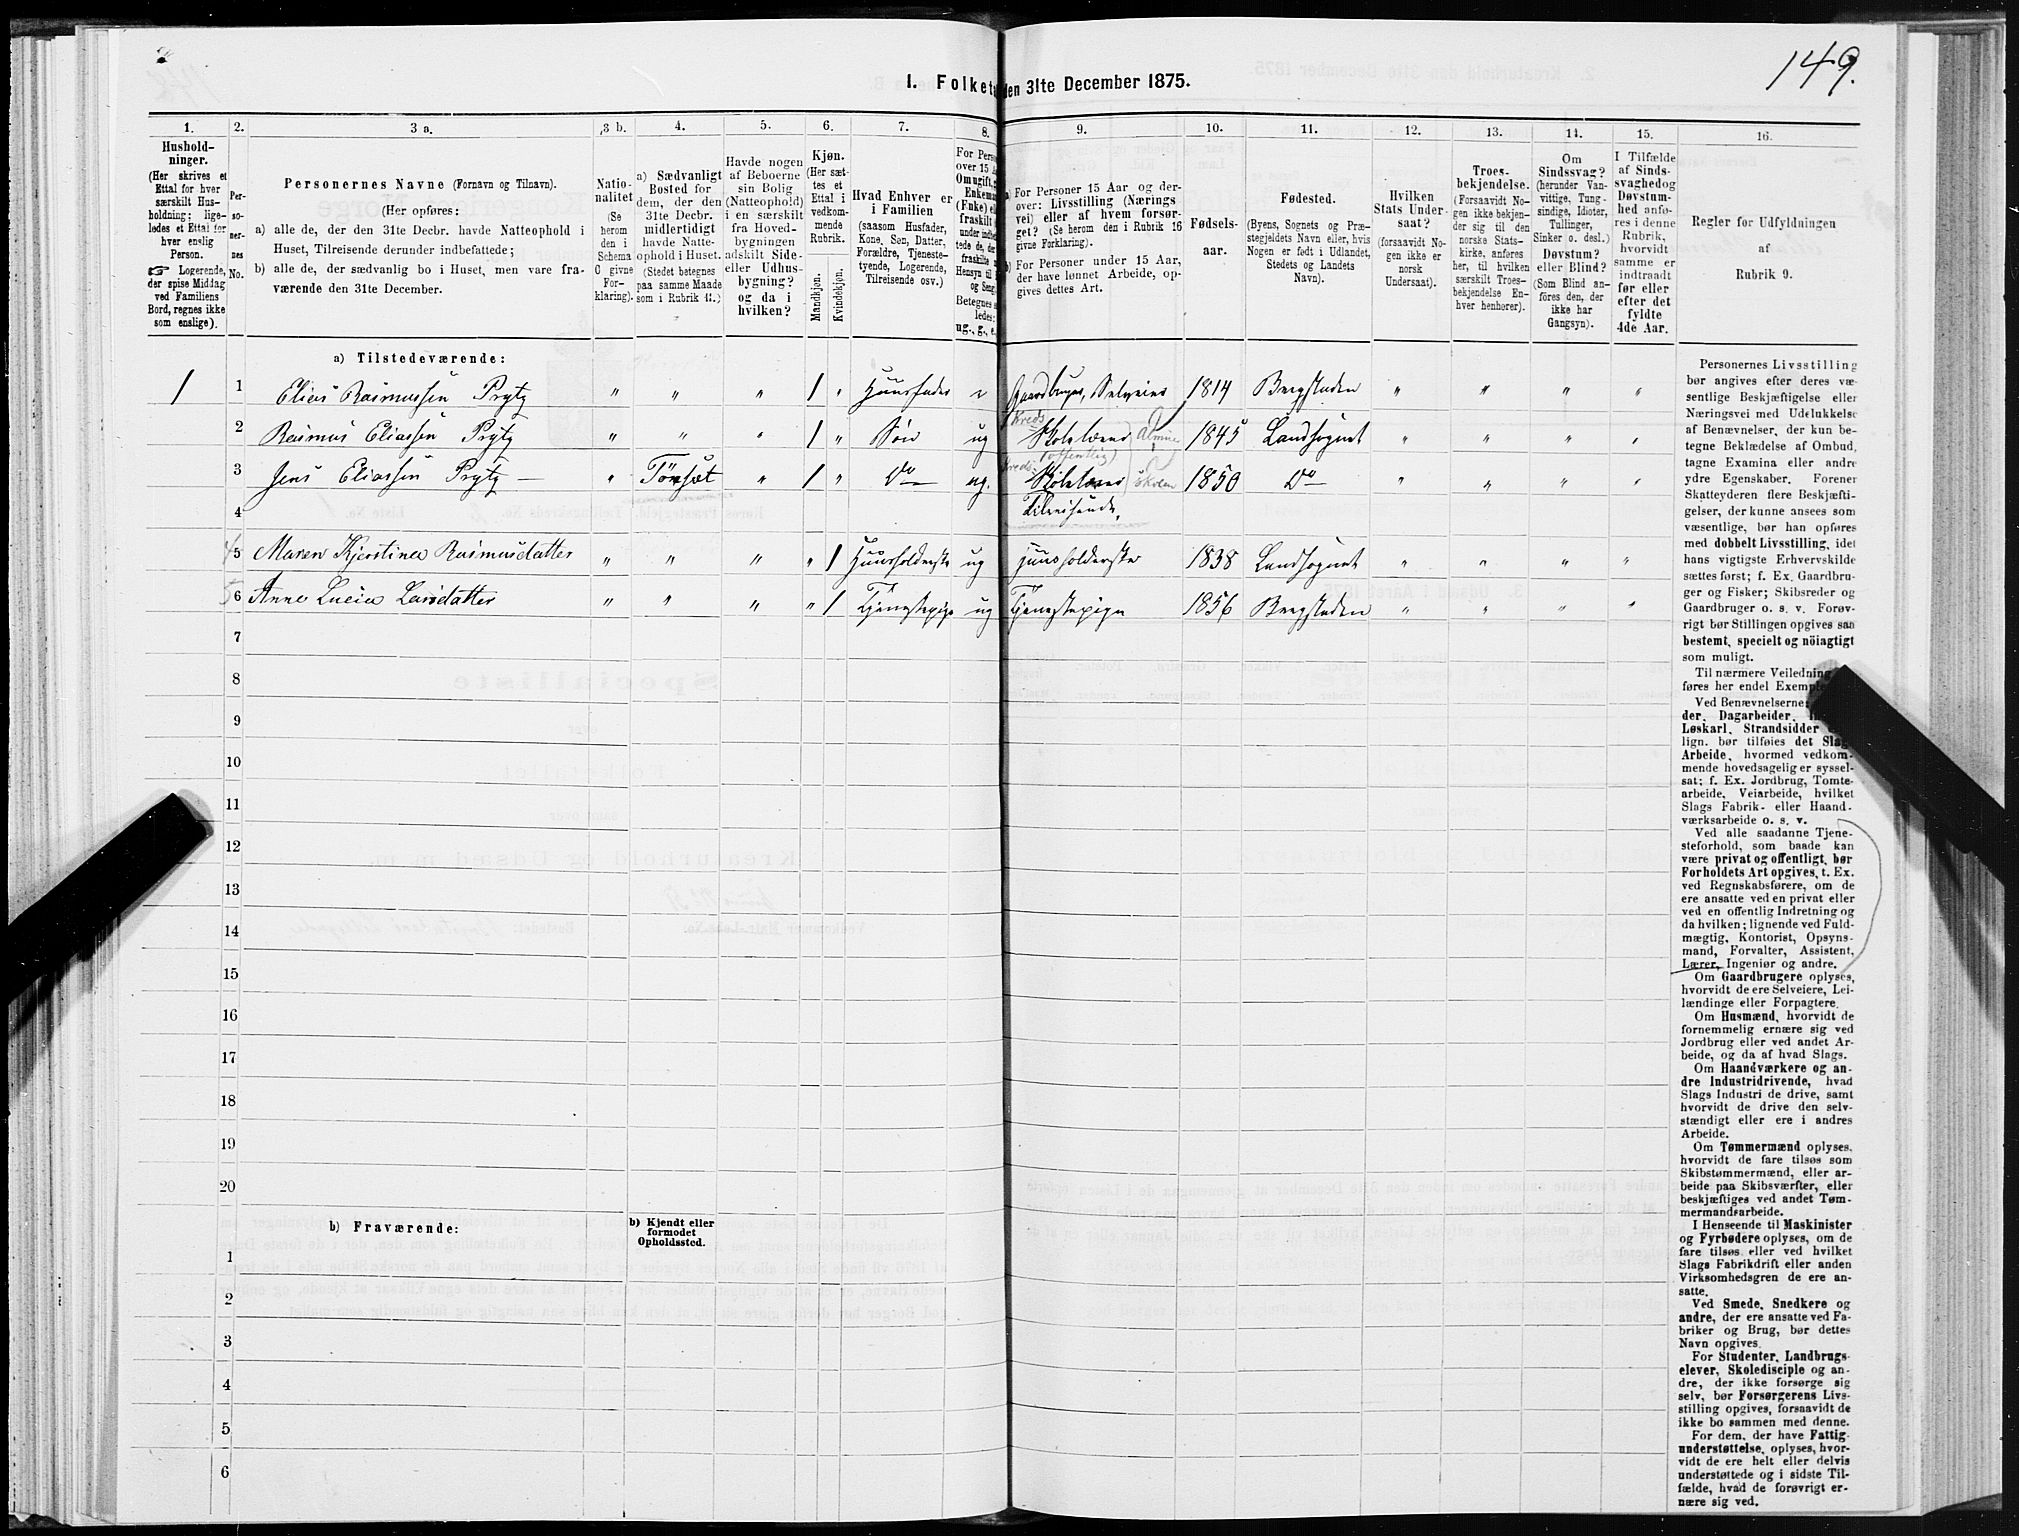 149.
I. Folketæ den 31te December 1875.
1. 2. 3 a. 3 b. 4. 5. 6. 7. 8. 9. 10. 11. 12. 13. 14. 15. 16.
Hushold-
ninger.
(Her skrives et
Ettal for hver
særskilt Hus-
holdning; lige-
ledes et Ettal for
hver enslig
Person.
☞ Logerende,
der spise Middag
ved Familiens
Bord, regnes ikke
som enslige).
Per-
so-
ner-
nes
No.
Personernes Navne (Fornavn og Tilnavn).
(Her opføres:
a) alle de, der den 31te Decbr. havde Natteophold i
Huset, Tilreisende derunder indbefattede;
b) alle de, der sædvanlig bo i Huset, men vare fra-
værende den 31te December.
Natio-
nalitet
(Se
herom
den i
Schema
C givne
For-
klaring).
a) Sædvanligt
Bosted for
dem, der den
31te Decbr.
midlertidigt
havde Natte-
ophold i Huset.
(Stedet betegnes
paa samme Maade
som i Rubrik 11.)
Havde nogen
af Beboerne
sin Bolig
(Natteophold)
i en særskilt
fra Hoved-
bygningen
adskilt Side-
eller Udhus-
bygning?
og da i
hvilken?
Kjøn.
(Her sæt-
tes et
Ettal i
vedkom-
mende
Rubrik.
Mandkjøn.
Kvindekjøn.
Hvad Enhver er
i Familien
(saasom Husfader,
Kone, Søn, Datter,
Forældre, Tjeneste-
tyende, Logerende,
Tilreisende osv.)
For Perso
over 15
Om ugift,
Enkema
(Enke) el
fraskilt
Betegnes s
ledes:
ug., g., e.
a) For Personer 15 Aar og der-
over: Livsstilling (Nærings
vei) eller af hvem forsør-
get? (Se herom den i Rubrik 16
givne Forklaring).
b) For Personer under 15 Aar,
der have lønnet Arbeide, op-
gives dettes Art.
Fødsels-
aar.
Fødested.
(Byens, Sognets og Præ-
stegjeldets Navn eller, hvis
Nogen er født i Udlandet,
Stedets og Landets
Navn).
Hvilken
Stats Under-
saat?
(forsaavidt No-
gen ikke er
norsk
Undersaat).
Troes-
bekjendelse.
(Forsaavidt No-
gen ikke bekjen-
der sig til den
norske Stats-
kirke, anføres
her, til hvilken
særskilt Troes-
bekjendelse En-
hver henhører).
Om
Sindssvag?
(herunder Van-
vittige, Tung-
sindige, Idioter,
Tullinger,
Sinker o. desl.)
Døvstum?
eller Blind?
(Som Blind an-
føres den, der
ikke har
Gangsyn).
I Tilfælde
af Sinds-
svaghed og
Døvstum-
hed anfø-
res i denne
Rubrik,
hvorvidt
samme er
indtraadt
før eller
efter det
fyldte
4de Aar.
Regler for Udfyldningen
af
Rubrik 9.
a) Tilstedeværende:
1 1 Elias Rasmussen Prytz " " " 1 " Huusfader e Gaardbruger, Selveier 1814 Bergstaden " " " "
2 Rasmus Eliassen Prytz " " " 1 " Søn ug Kreds Skolelærer 1845 Landsognet " " " "
(offentlig)
3 Jens Eliassen Prytz — " Tönset " 1 " Do — ug. Kreds Skolelærer 1850 Do — " " " "
4 Tilreisende,
5 Maren Kjerstina Rasmusdatter " " " " 1 Huusholderske ug Huusholderske 1838 Landsognet " " " "
6 Anne Lucia Larsdatter " " " " 1 Tjenestepige ug Tjenestepige 1856 Bergstaden " " " "
7
8
9
10
11
12
13
14
15
16
17
18
19
20
b) Fraværende:
b) Kjendt eller
formodet
Opholdssted.
1
2
3
4
5
6
Personernes Livsstilling
bør angives efter deres væ-
sentlige Beskjæftigelse eller
Næringsvei med Udelukkelse
af Benævnelser, der kun be-
tegne Beklædelse af Ombud,
tagne Examina eller andre
ydre Egenskaber. Forener
Skatteyderen flere Beskjæfti-
gelser, der kunne ansees som
væsentlige, bør han opføres
med dobbelt Livsstilling, idet
hans vigtigste Erhvervskilde
sættes først; f. Ex. Gaardbru-
ger og Fisker; Skibsreder og
Gaardbruger o. s. v. Forøv-
rigt bør Stillingen opgives saa
bestemt, specielt og nöiagtigt
som muligt.
Til nærmere Veiledning
føres her endel Exemp
Ved Benævnelserne:
der, Dagarbeider,
Løskarl, Strandsidder
lign. bør tilføies det Slag
Arbeide, hvormed vedkom-
mende hovedsagelig er syssel-
sat; f. Ex. Jordbrug, Tomte-
arbeide, Veiarbeide, hvilket
Slags Fabrik- eller Haand-
værksarbeide o. s. v.
Ved alle saadanne Tjene-
steforhold, som baade kan
være privat og offentligt, bør
Forholdets Art opgives, t. Ex.
ved Regnskabsførere, om de
ere ansatte ved en privat eller
ved en offentlig Indretning og
da hvilken; lignende ved Fuld-
mægtig, Kontorist, Opsyns-
mand, Forvalter, Assistent,
Lærer, Ingeniør og andre.
Om Gaardbrugere oplyses,
hvorvidt de ere Selveiere, Lei-
lændinge eller Forpagtere.
Om Husmænd, hvorvidt de
fornemmelig ernære sig ved
Jordbrug eller ved andet Ar-
beide, og da af hvad Slags.
Om Haandværkere og an-
dre Industridrivende, hvad
Slags Industri de drive, samt
hvorvidt de drive den selv-
stændigt eller ere i andres
Arbeide.
Om Tømmermænd oplyses,
hvorvidt de fare tilsøs som
Skibstømmermænd, eller ar-
beide paa Skibsværfter, eller
beskjæftiges ved andet Tøm-
mermandsarbeide.
I Henseende til Maskinister
og Fyrbødere oplyses, om de
fare tilsøs eller ved hvilket
Slags Fabrikdrift eller anden
Virksomhedsgren de ere an-
satte.
Ved Smede, Snedkere og
andre, der ere ansatte ved Fa-
briker og Brug, bør dettes
Navn opgives.
For Studenter, Landbrugs-
elever, Skoledisciple og an-
dre, der ikke forsørge sig
selv, bør Forsørgerens Livs-
stilling opgives, forsaavidt de
ikke bo sammen med denne.
For dem, der have Fattig-
understøttelse, oplyses, hvor-
vidt de ere helt eller delvis
understøttede og i sidste Til-
fælde, hvad de forøvrigt er-
nære sig ved.